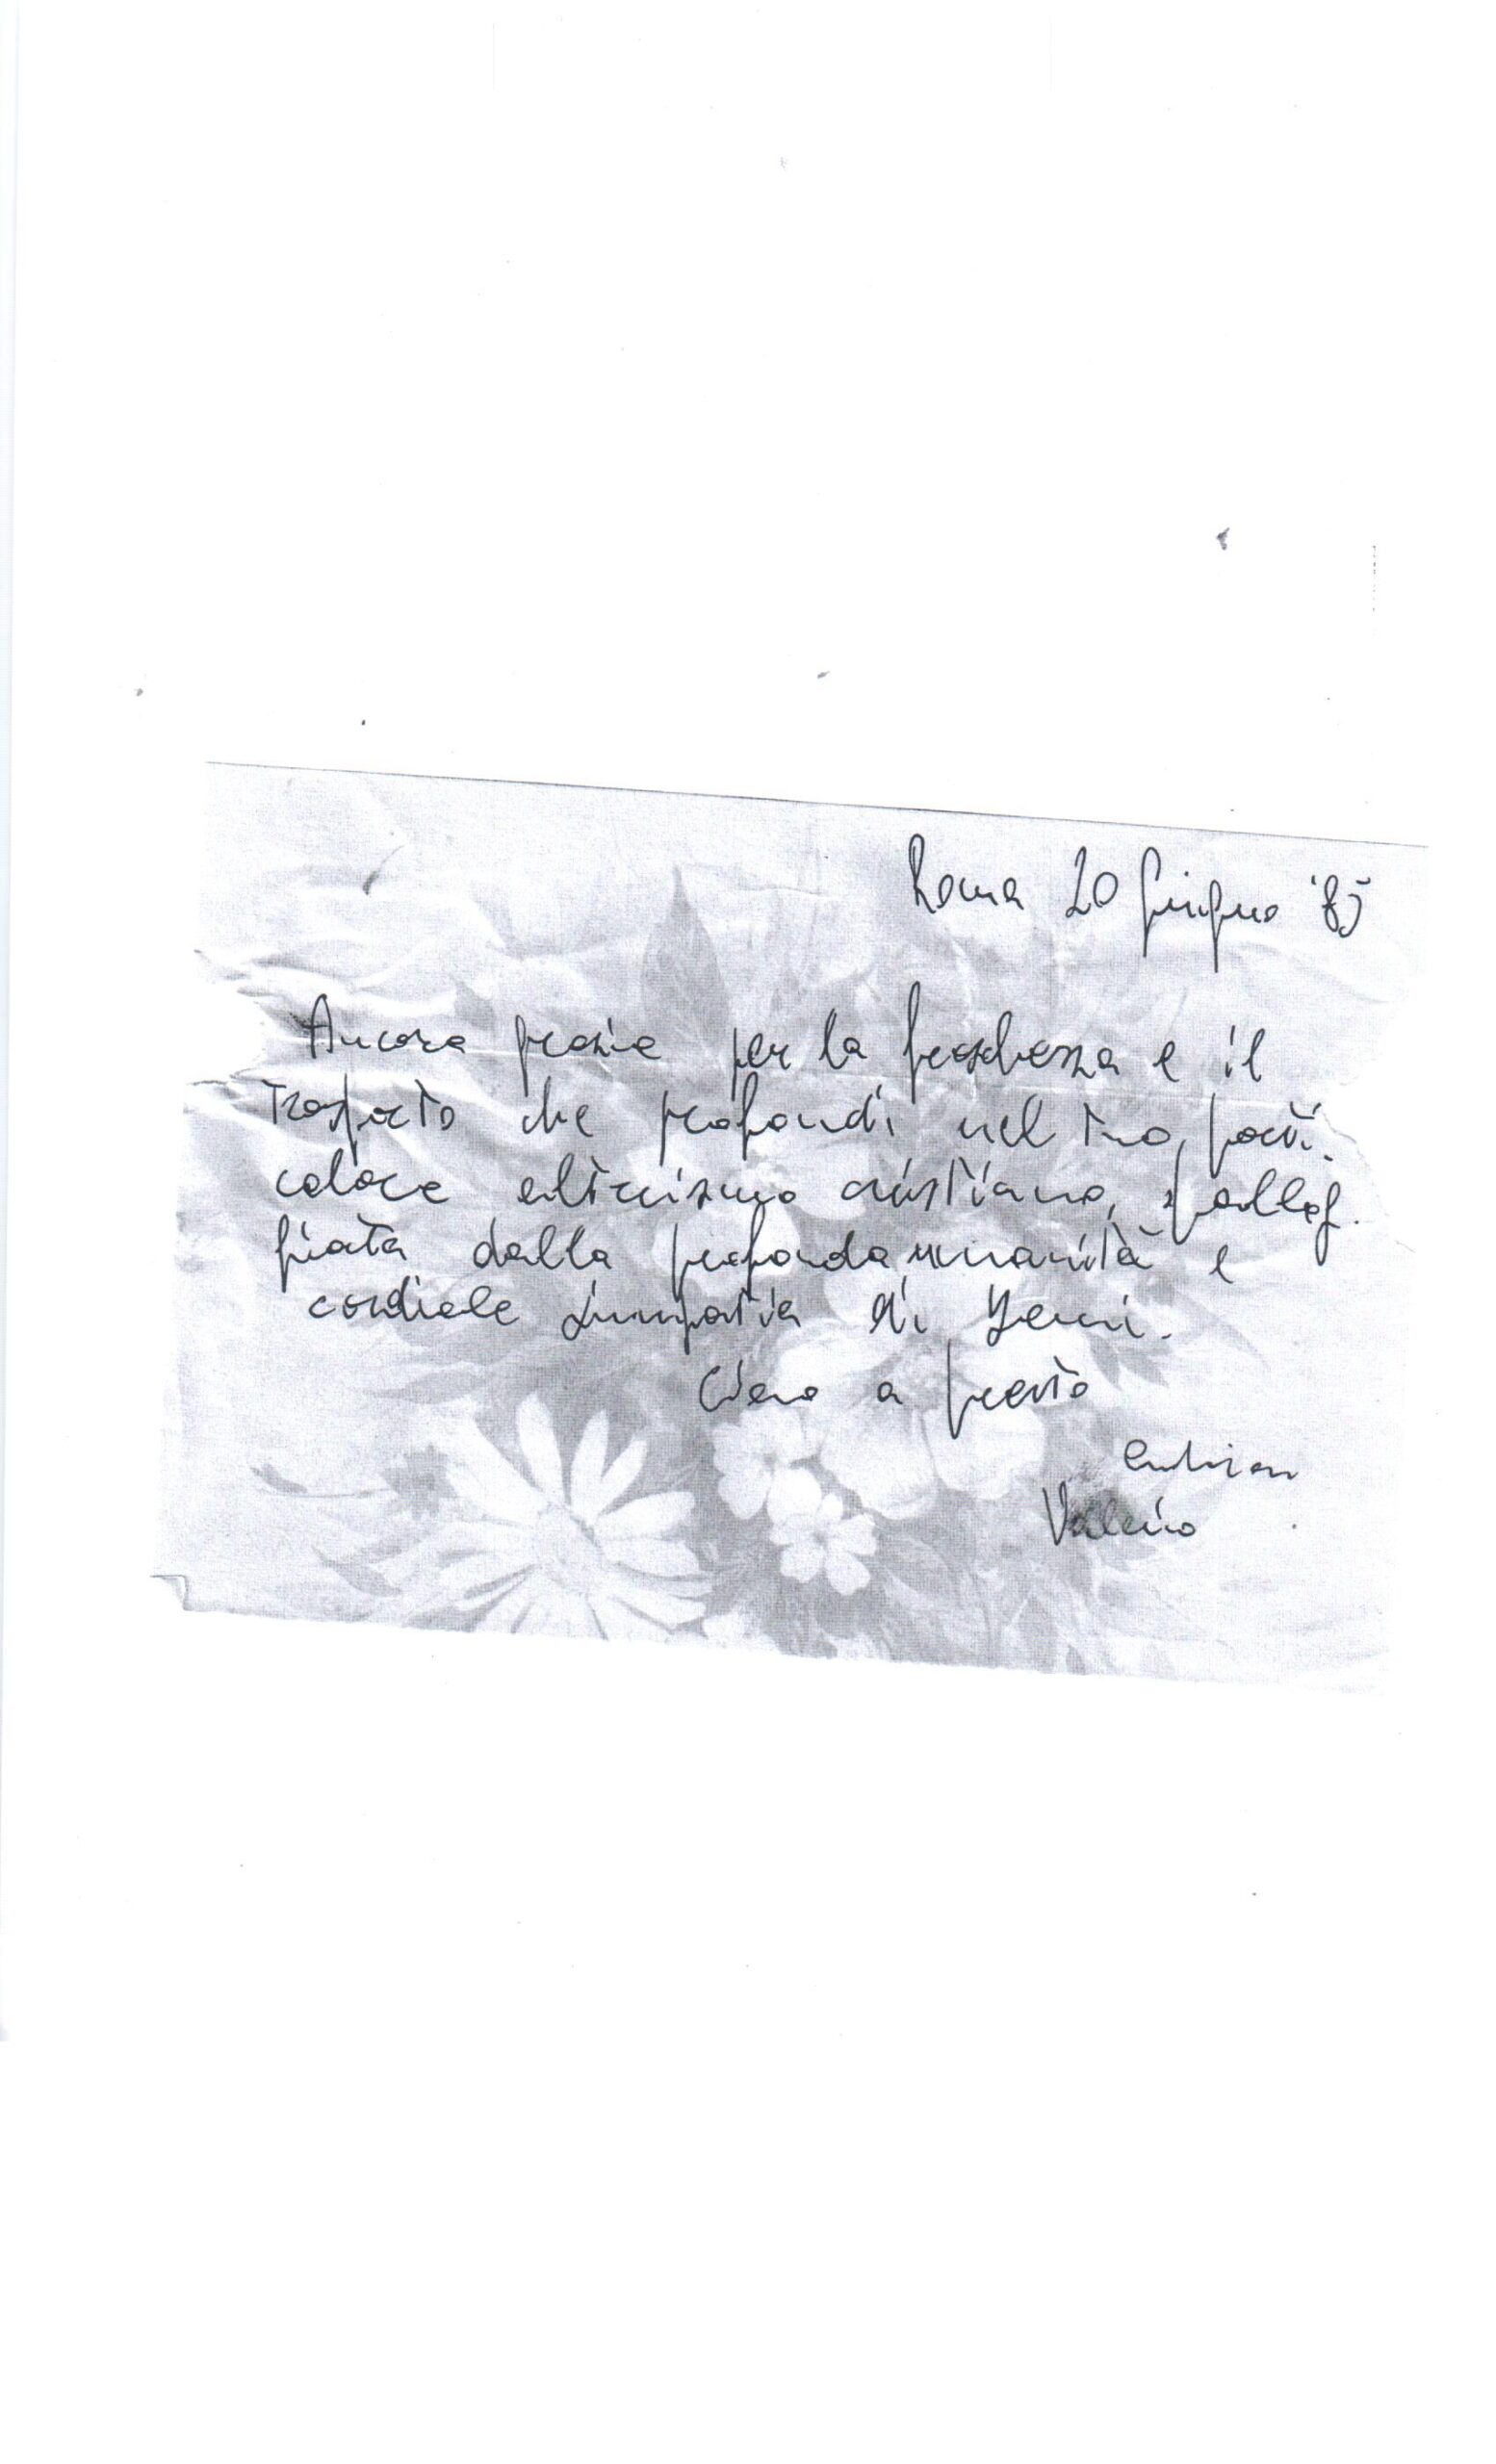 Roma 20 giugno '85
Ancora grazie per la freschezza e il
trasporto che profondi nel tuo parti-
colare altruismo cristiano, spalleg-
giata dalla profonda umanità e
cordiale simpatia di Yemi.
Ciao a presto
Valerio